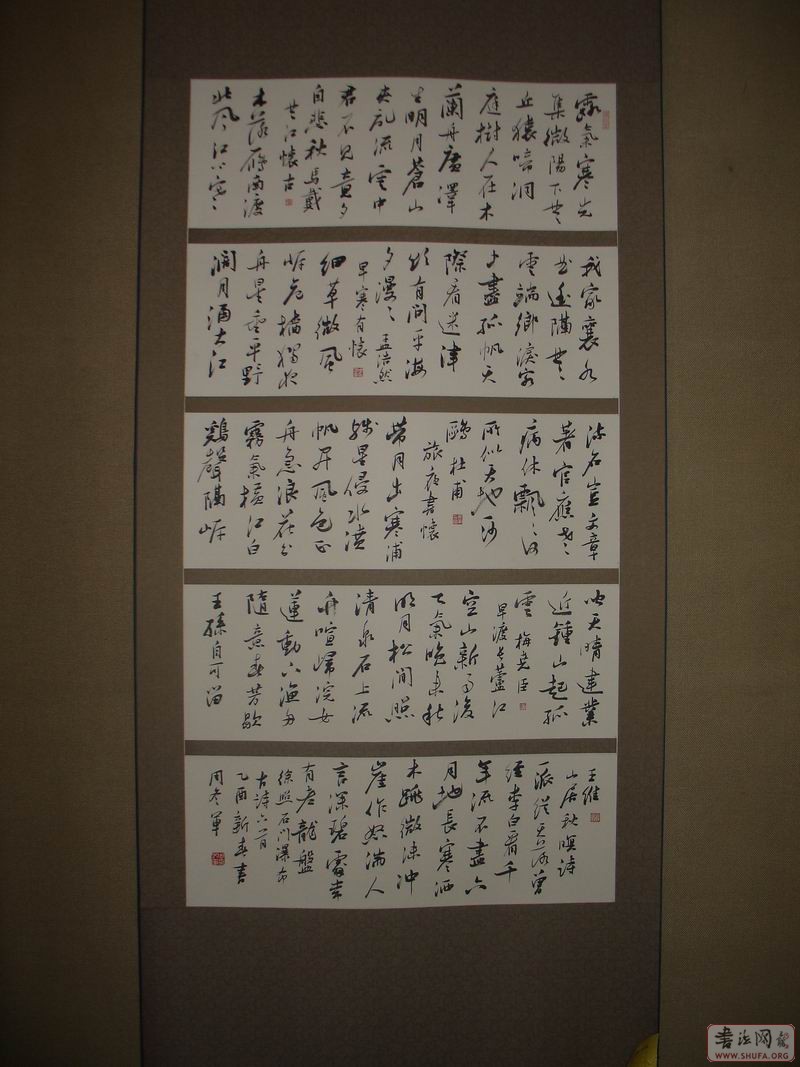 露氣寒光
集微陽下楚
丘猿啼洞
庭樹人在木
蘭舟廣澤
生明月蒼山
夾亂流雲中
君不見竟夕
自悲秋馬戴
楚江懷古
木落雁南渡
北風江上寒
我家襄水
曲遙隔楚
雲端鄉淚客
中盡孤帆天
際看迷津
欲有問平海
夕漫〻孟浩然
早寒有懷
細草微風
岸危檣獨夜
舟星垂平野
闊月湧大江
流名豈文章
著官應老〻
病休飄〻何
所似天地沙
鷗杜甫
旅夜書懷
帶月出寒浦
殘星侵水潢
帆開風色正
舟急浪花分
霧氣橫江白
鷄聲隔岸
吹天晴建業
近鍾山起孤
雲梅堯臣
早渡長蘆江
空山新雨後
天氣晚來秋
明月松間照
清泉石上流
竹喧歸浣女
蓮動下漁舟
隨意春芳歇
王孫自可留
王維
山居秋暝詩
一派從天下曾
經李白看千
年流不盡六
月地長寒洒
木跳微沫冲
崖作怒湍人
言深碧處常
有老龍盤
徐照石門瀑布
古詩六首
乙酉新春書
周冬軍
書法网
WWW.SHUFA.ORG